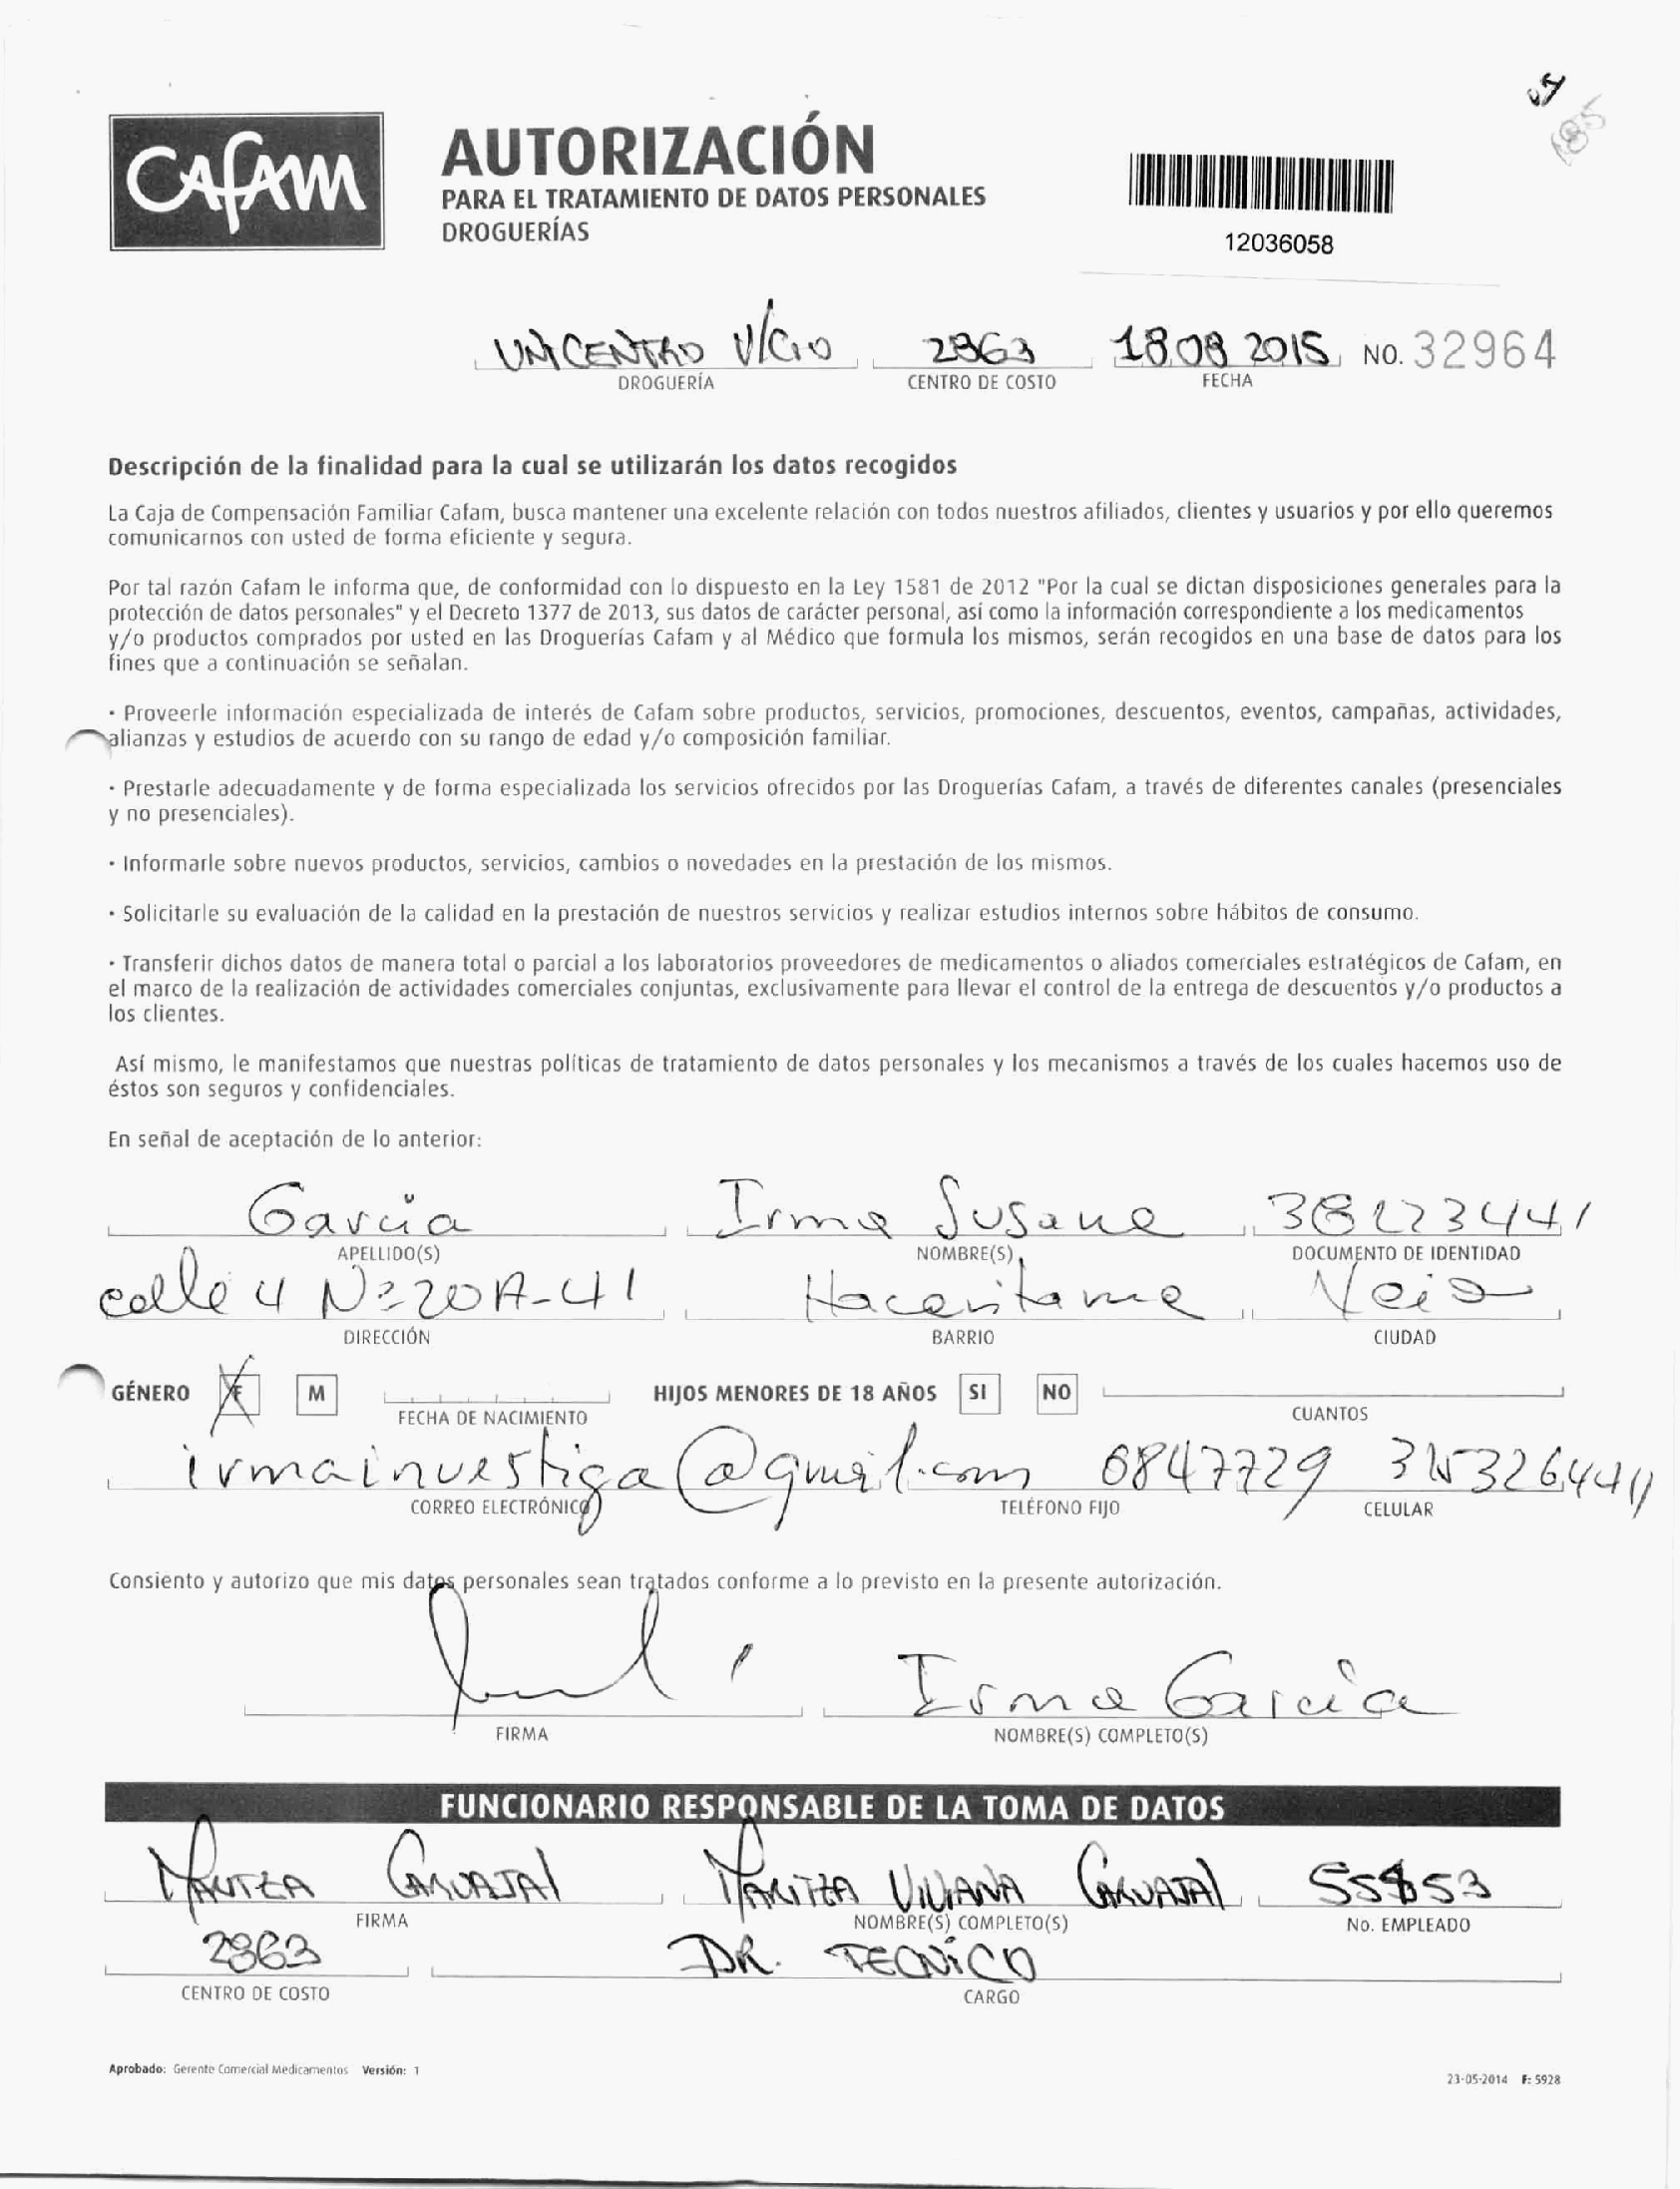 CAFAM
AUTORIZACIÓN
PARA EL TRATAMIENTO DE DATOS PERSONALES
DROGUERÍAS
12036058
UNICENTRO V/CIO 2963 18 08 2015 NO. 32964
DROGUERÍA CENTRO DE COSTO FECHA
Descripción de la finalidad para la cual se utilizarán los datos recogidos
La Caja de Compensación Familiar Cafam, busca mantener una excelente relación con todos nuestros afiliados, clientes y usuarios y por ello queremos
comunicarnos con usted de forma eficiente y segura.
Por tal razón Cafam le informa que, de conformidad con lo dispuesto en la Ley 1581 de 2012 "Por la cual se dictan disposiciones generales para la
protección de datos personales" y el Decreto 1377 de 2013, sus datos de carácter personal, así como la información correspondiente a los medicamentos
y/o productos comprados por usted en las Droguerías Cafam y al Médico que formula los mismos, serán recogidos en una base de datos para los
fines que a continuación se señalan.
· Proveerle información especializada de interés de Cafam sobre productos, servicios, promociones, descuentos, eventos, campañas, actividades,
alianzas y estudios de acuerdo con su rango de edad y/o composición familiar.
· Prestarle adecuadamente y de forma especializada los servicios ofrecidos por las Droguerías Cafam, a través de diferentes canales (presenciales
y no presenciales).
· Informarle sobre nuevos productos, servicios, cambios o novedades en la prestación de los mismos.
· Solicitarle su evaluación de la calidad en la prestación de nuestros servicios y realizar estudios internos sobre hábitos de consumo.
· Transferir dichos datos de manera total o parcial a los laboratorios proveedores de medicamentos o aliados comerciales estratégicos de Cafam, en
el marco de la realización de actividades comerciales conjuntas, exclusivamente para llevar el control de la entrega de descuentos y/o productos a
los clientes.
Así mismo, le manifestamos que nuestras políticas de tratamiento de datos personales y los mecanismos a través de los cuales hacemos uso de
éstos son seguros y confidenciales.
En señal de aceptación de lo anterior:
García Irma Susana
APELLIDO(S) NOMBRE(S) DOCUMENTO DE IDENTIDAD
calle 4 Nº 20A-41
DIRECCIÓN BARRIO CIUDAD
GÉNERO F M FECHA DE NACIMIENTO HIJOS MENORES DE 18 AÑOS SI NO CUANTOS
irmainvestiga@gmail.com 6847729
CORREO ELECTRÓNICO TELÉFONO FIJO CELULAR
Consiento y autorizo que mis datos personales sean tratados conforme a lo previsto en la presente autorización.
Irma García
FIRMA NOMBRE(S) COMPLETO(S)
FUNCIONARIO RESPONSABLE DE LA TOMA DE DATOS
MARITZA CARVAJAL MARITZA VIVIANA CARVAJAL
FIRMA NOMBRE(S) COMPLETO(S) No. EMPLEADO
2963 DR. TECNICO
CENTRO DE COSTO CARGO
Aprobado: Gerente Comercial Medicamentos Versión: 1
23-05-2014 F: 5928